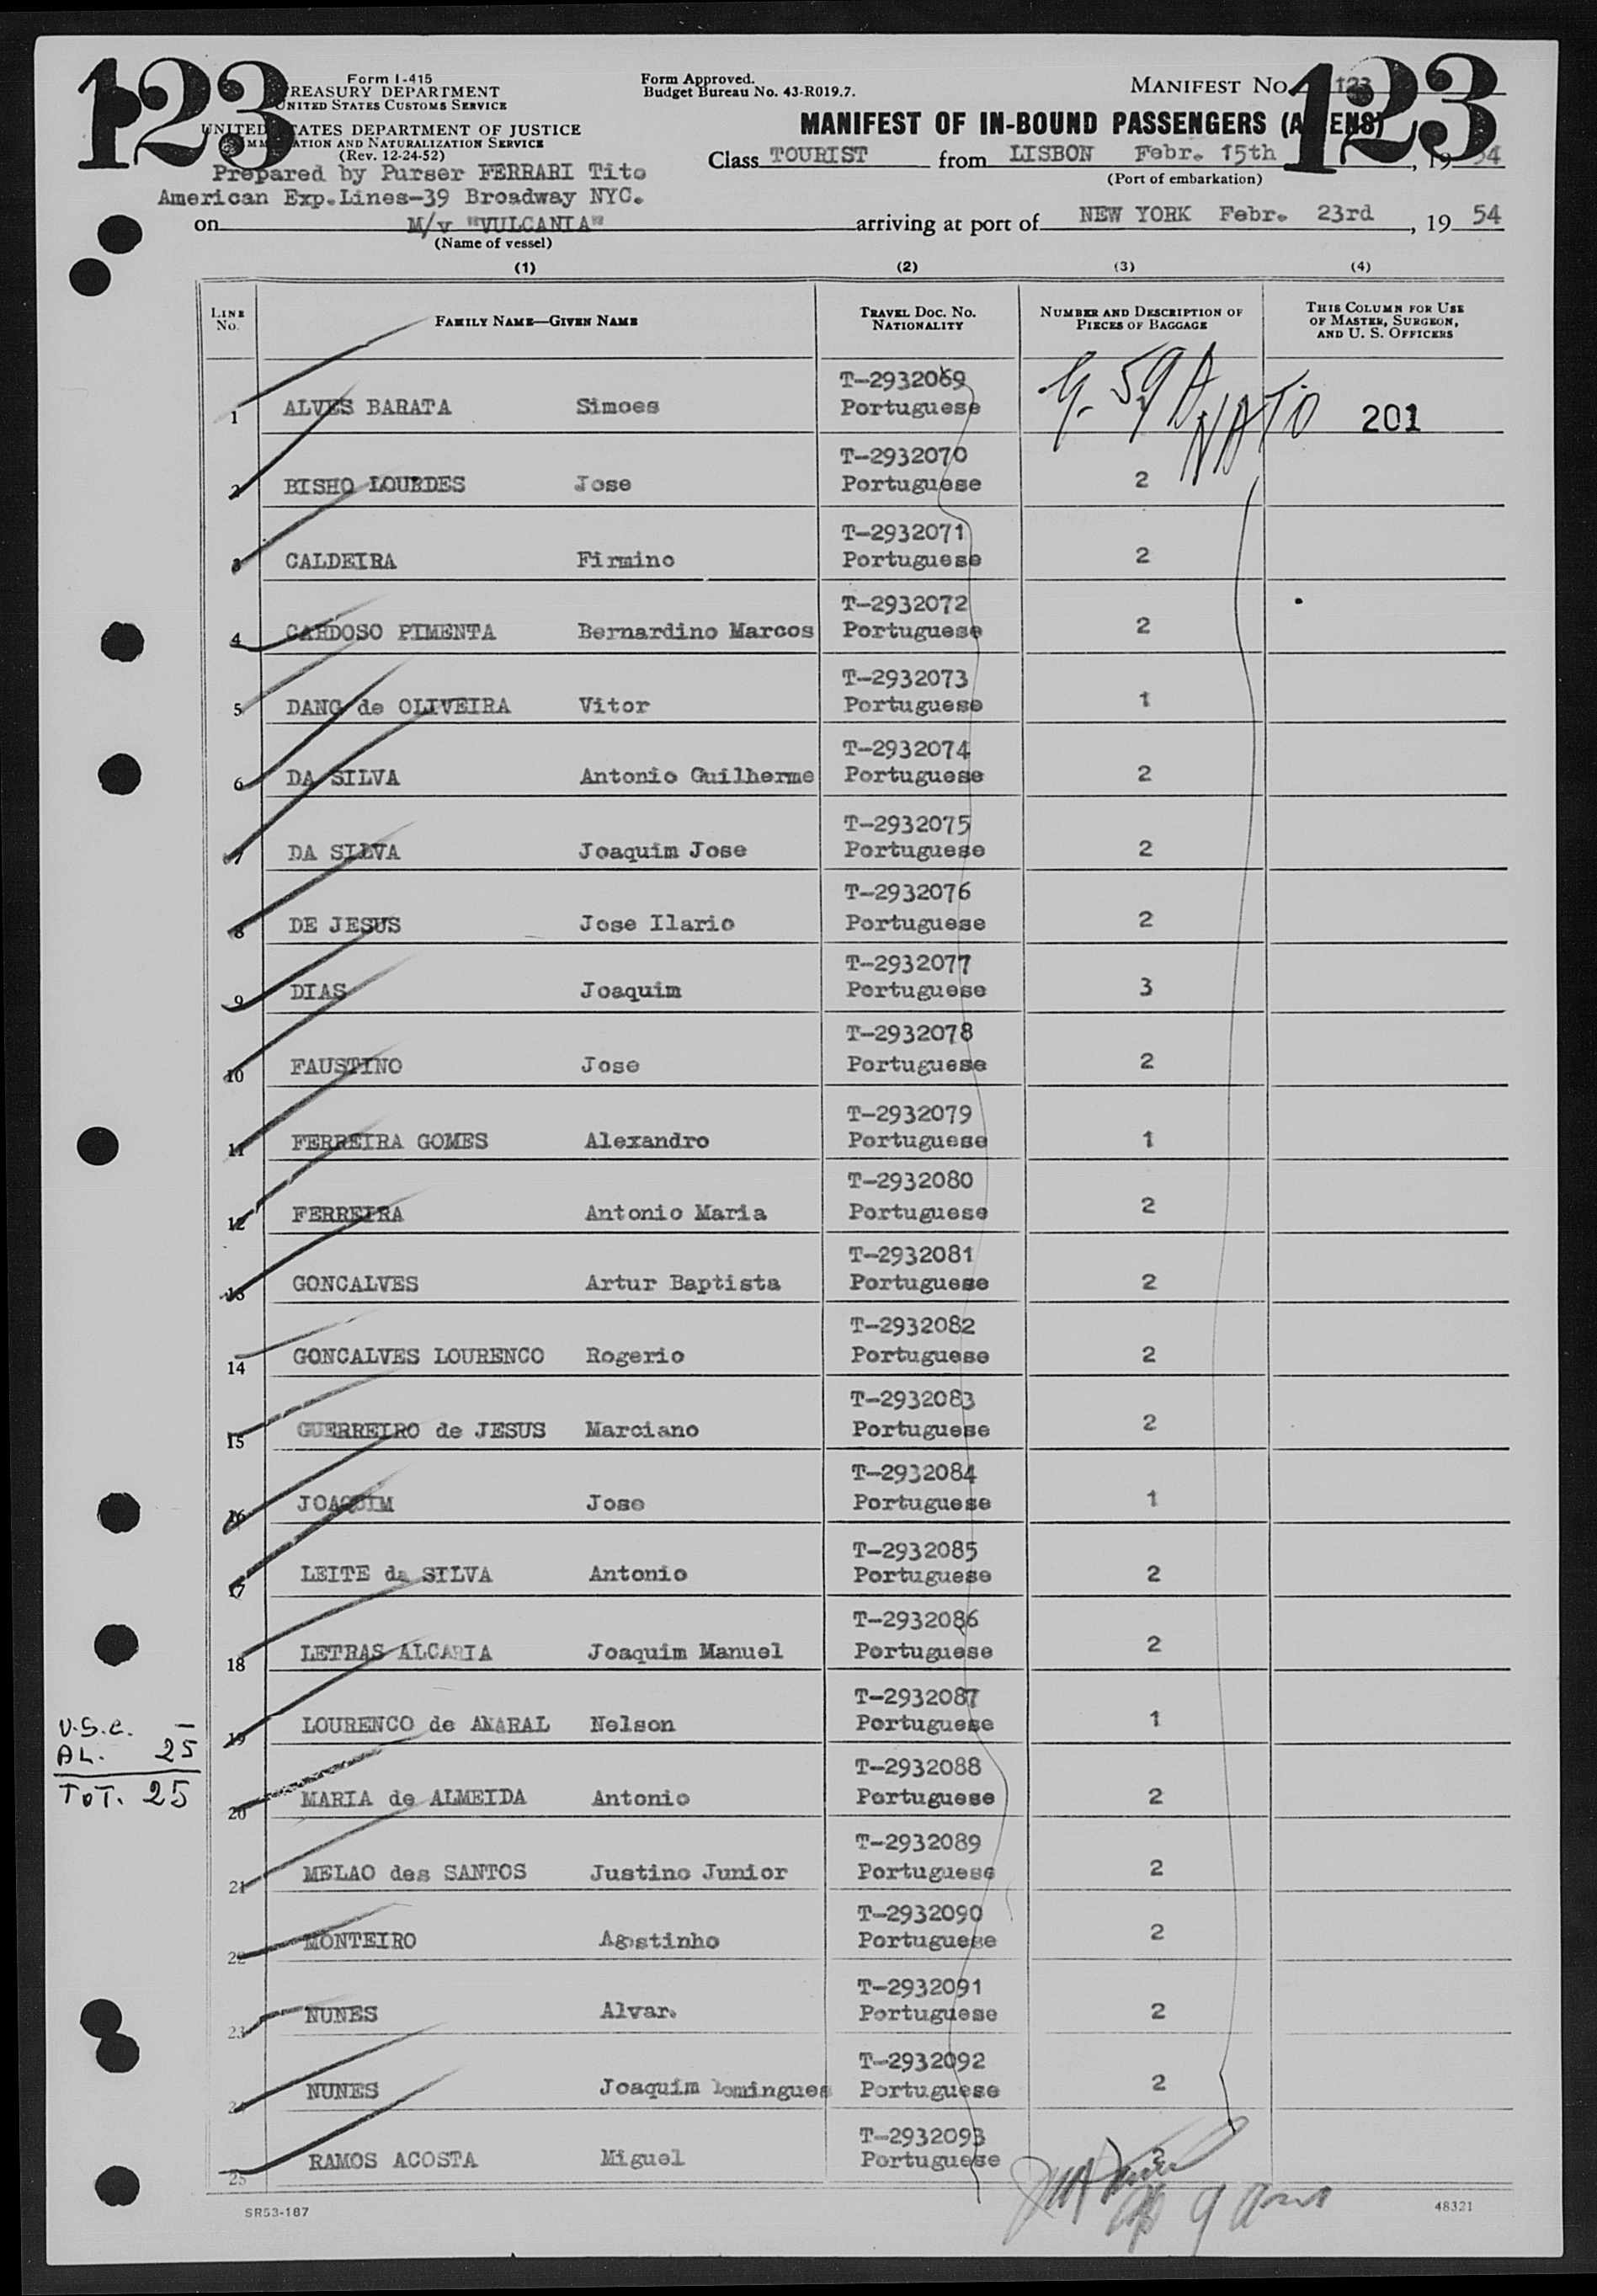 123
123
Form I-415
TREASURY DEPARTMENT
UNITED STATES CUSTOMS SERVICE
UNITED STATES DEPARTMENT OF JUSTICE
IMMIGRATION AND NATURALIZATION SERVICE
(Rev. 12-24-52)
Form Approved.
Budget Bureau No. 43-R019.7.
MANIFEST No. 123
MANIFEST OF IN-BOUND PASSENGERS (ALIENS)
Class TOURIST from LISBON Febr. 15th, 1954
(Port of embarkation)
Prepared by Purser FERRARI Tito
American Exp.Lines-39 Broadway NYC.
on M/v "VULCANIA" arriving at port of NEW YORK Febr. 23rd, 19 54
(Name of vessel)
(1) (2) (3) (4)
LINE No. FAMILY NAME—GIVEN NAME TRAVEL DOC. NO. NATIONALITY NUMBER AND DESCRIPTION OF PIECES OF BAGGAGE THIS COLUMN FOR USE OF MASTER, SURGEON, AND U. S. OFFICERS
T-2932069
1 ALVES BARATA Simoes Portuguese NATO 201
T-2932070
2 BISHO LOURDES Jose Portuguese 2
T-2932071
3 CALDEIRA Firmino Portuguese 2
T-2932072
4 CARDOSO PIMENTA Bernardino Marcos Portuguese 2
T-2932073
5 DANO de OLIVEIRA Vitor Portuguese 1
T-2932074
6 DA SILVA Antonio Guilherme Portuguese 2
T-2932075
7 DA SILVA Joaquim Jose Portuguese 2
T-2932076
8 DE JESUS Jose Ilario Portuguese 2
T-2932077
9 DIAS Joaquim Portuguese 3
T-2932078
10 FAUSTINO Jose Portuguese 2
T-2932079
11 FERREIRA GOMES Alexandro Portuguese 1
T-2932080
12 FERREIRA Antonio Maria Portuguese 2
T-2932081
13 GONCALVES Artur Baptista Portuguese 2
T-2932082
14 GONCALVES LOURENCO Rogerio Portuguese 2
T-2932083
15 GUERREIRO de JESUS Marciano Portuguese 2
T-2932084
16 JOAQUIM Jose Portuguese 1
T-2932085
17 LEITE da SILVA Antonio Portuguese 2
T-2932086
18 LETRAS ALCARIA Joaquim Manuel Portuguese 2
T-2932087
19 LOURENCO de AMARAL Nelson Portuguese 1
T-2932088
20 MARIA de ALMEIDA Antonio Portuguese 2
T-2932089
21 MELAO des SANTOS Justino Junior Portuguese 2
T-2932090
22 MONTEIRO Agostinho Portuguese 2
T-2932091
23 NUNES Alvaro Portuguese 2
T-2932092
24 NUNES Joaquim Domingues Portuguese 2
T-2932093
25 RAMOS ACOSTA Miguel Portuguese 2
U.S.C. –
AL. 25
TOT. 25
SR53-187
48321